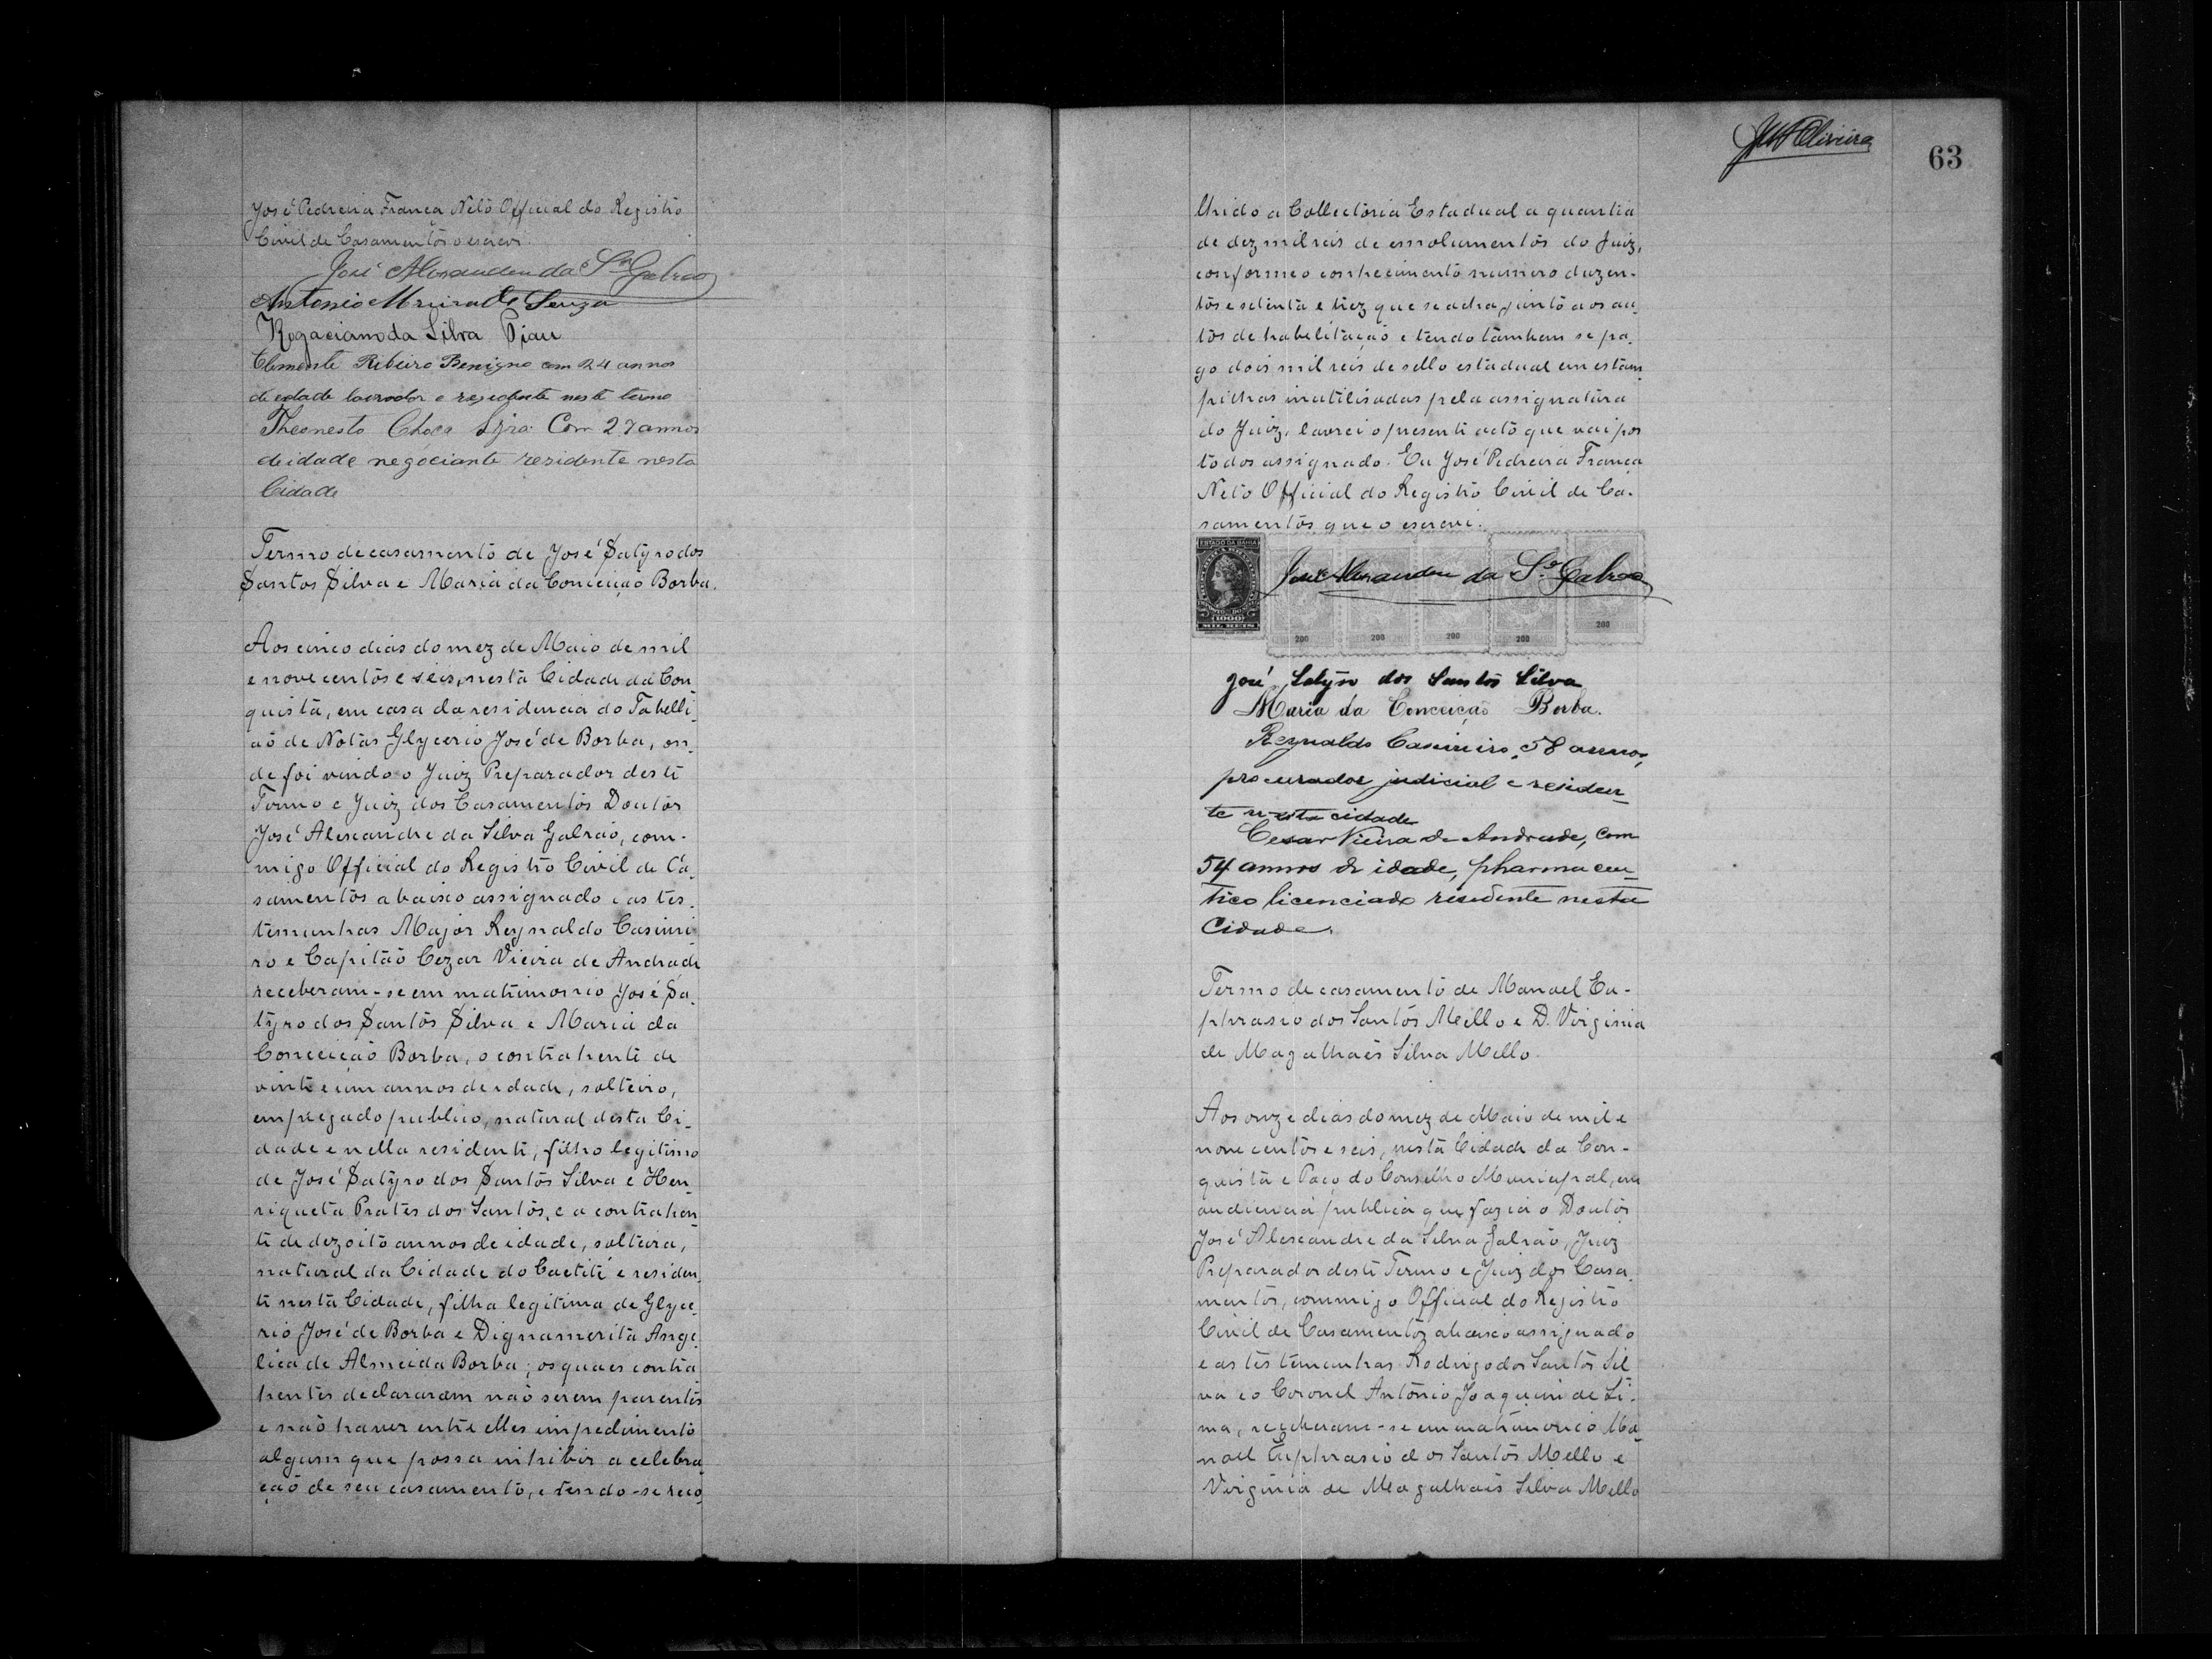 José Pedreira França Neto Official do Registro
Civil de Casamentos o escrevi.
José Alexandre da Sª Galrão
Antonio Moreira de Souza
Rogaciano da Silva Piau
Clemente Ribeiro Benigno com 24 annos
de edade lavrador e residente neste termo
Theonesto Com 27 annos
de idade negociante residente nesta
Cidade
Termo de casamento de José Satyro dos
Santos Silva e Maria da Conceição Borba.
Aos cinco dias do mez de Maio de mil
e nove centos e seis, nesta Cidade da Con-
quista, em casa da residencia do Tabelli-
ão de Notas Glycerio José de Borba, on-
de foi vindo o Juiz Preparador deste
Termo e Juiz dos Casamentos Doutor
José Alexandre da Silva Galrão, com-
migo Official do Registro Civil de Ca-
samentos abaixo assignado e as tes-
temunhas Major Reynaldo Casimi-
ro e Capitão Cezar Vieira de Andrade
receberam-se em matrimonio José Sa-
tyro dos Santos Silva e Maria da
Conceição Borba, o contrahente de
vinte e um annos de idade, solteiro,
empregado publico, natural desta Ci-
dade e nella residente, filho legitimo
de José Satyro dos Santos Silva e Hen-
riqueta Prates dos Santos, e a contrahen-
te de dezoito annos de idade, solteira,
natural da Cidade do Caetité e residen-
te nesta Cidade, filha legitima de Glyce-
rio José de Borba e Dignamerita Ange-
lica de Almeida Borba; os quaes contra-
hentes declararam não serem parentes
e não haver entre elles impedimento
algum que possa inhibir a celebra-
ção de seu casamento, e tendo-se reco-
JM Oliveira
63
lhido a Collectoria Estadual a quantia
de dez mil reis de emolumentos do Juiz,
conforme o conhecimento numero duzen-
tos e setenta e trez que se acha junto aos au-
tos de habilitação e tendo tambem se pa-
go dois mil reis de sello estadual em estam-
pilhas inutilisadas pela assignatura
do Juiz, lavrei o presente acto que vai por
todos assignado. Eu José Pedreira França
Neto Official do Registro Civil de Ca-
samentos que o escrevi.
ESTADO DA BAHIA
(1000)
MIL REIS
200 200 200 200 200
José Alexandre da Sª Galrão
José Satyro dos Santos Silva
Maria da Conceição Borba.
Reynaldo Casimiro, 58 annos,
procurador judicial e residen-
te nesta cidade
Cesar Vieira de Andrade, com
54 annos de idade, pharmaceu-
tico licenciado residente nesta
Cidade.
Termo de casamento de Manoel Eu-
phrasio dos Santos Mello e D. Virginia
de Magalhães Silva Mello.
Aos onze dias do mez de Maio de mil e
nove centos e seis, nesta Cidade da Con-
quista e Paço do Conselho Municipal, em
audiencia publica que fazia o Doutor
José Alexandre da Silva Galrão, Juiz
Preparador deste Termo e Juiz dos Casa-
mentos, commigo Official do Registro
Civil de Casamentos abaixo assignado
e as testemunhas Rodrigo dos Santos Sil-
va e o Coronel Antônio Joaquim de Li-
ma, receberam-se em matrimonio Ma-
noel Euphrasio dos Santos Mello e
Virginia de Magalhães Silva Mello